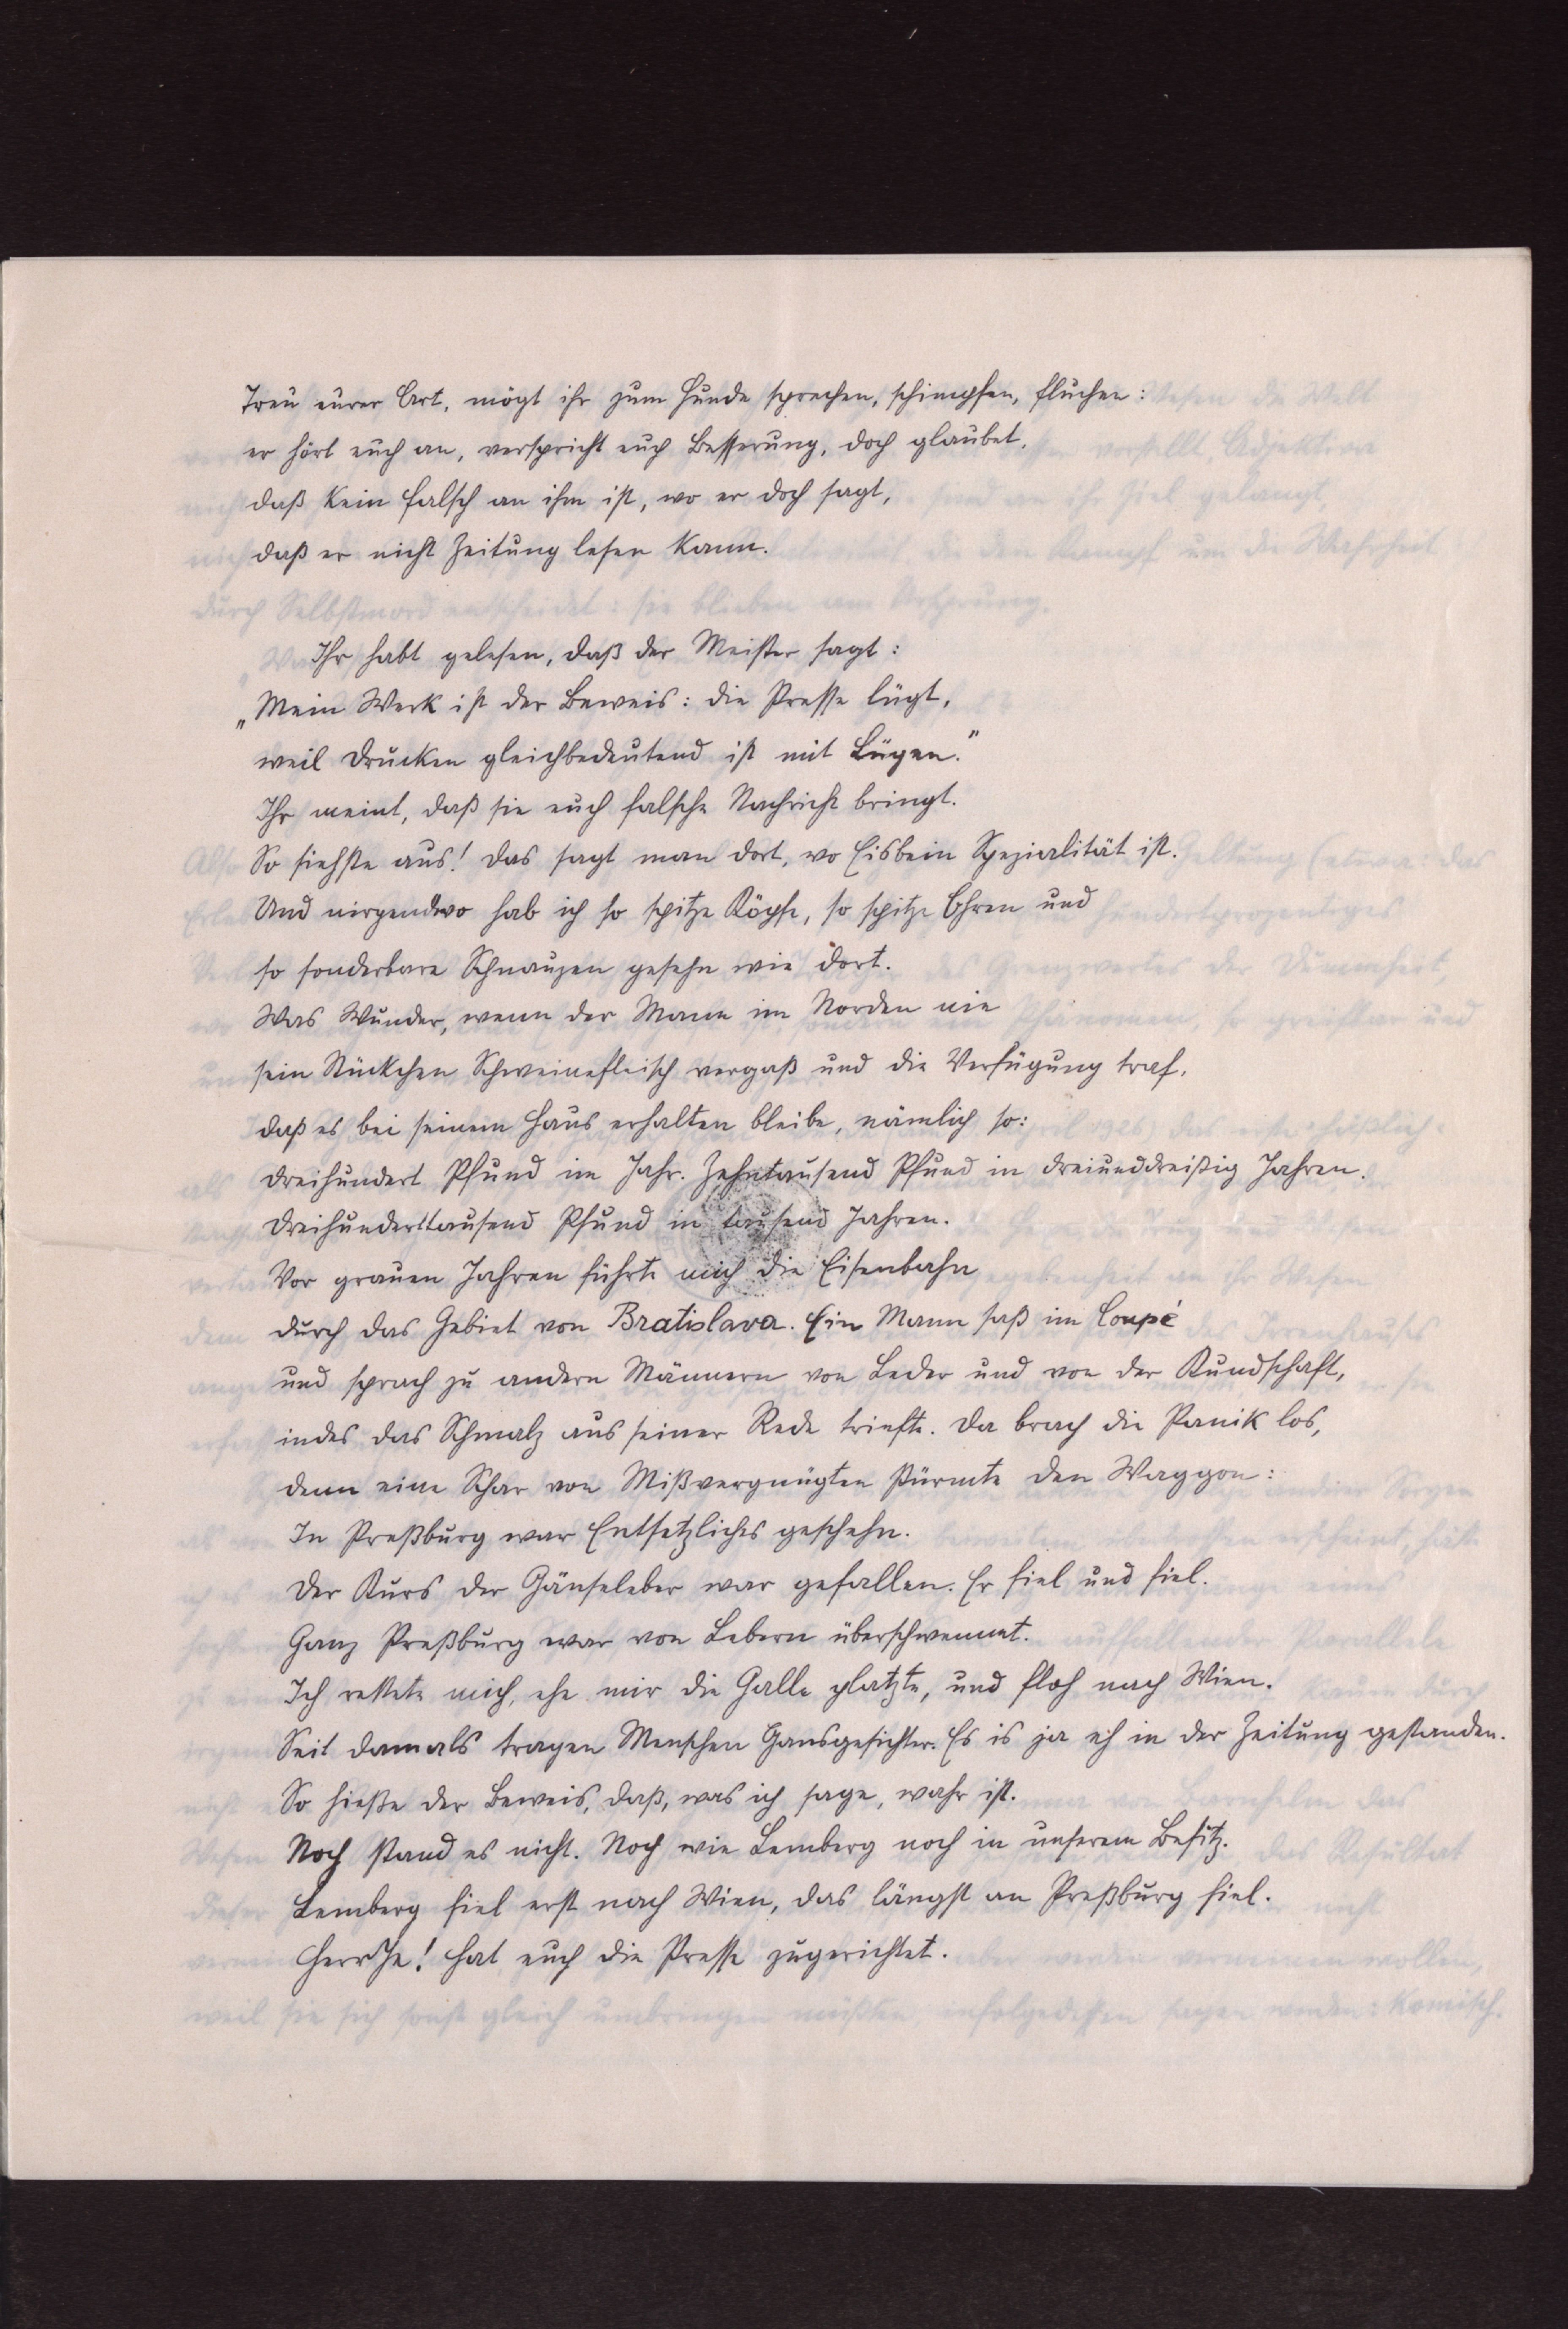 Treu eurer Art, mögt ihr zum Hunde sprechen, schimpfen, fluchen:
er hört euch an, verspricht euch Besserung, doch glaubet,
daß kein Falsch an ihm ist, wo er doch sagt,
daß er nicht Zeitung lesen kann.
Ihr habt gelesen, daß der Meister sagt:
„Mein Werk ist der Beweis: die Presse lügt,
weil Drucken gleichbedeutend ist mit Lügen.“
Ihr meint, daß sie euch falsche Nachricht bringt.
So siehste aus! Das sagt man dort, wo Eisbein Spezialität ist.
Und nirgendwo hab ich so spitze Köpfe, so spitze Ohren und
so sonderbare Schnauzen gesehn wie dort.
Was Wunder, wenn der Mann im Norden nie
sein Stückchen Schweinefleisch vergaß und die Verfügung traf,
daß es bei seinem Haus erhalten bleibe, nämlich so:
Dreihundert Pfund im Jahr. Zehntausend Pfund in dreiunddreißig Jahren.
Dreihunderttausend Pfund in tausend Jahren.
Vor grauen Jahren führte mich die Eisenbahn
durch das Gebiet von Bratislava. Ein Mann saß im Coupé
und sprach zu andern Männern von Leder und von der Kundschaft,
indes das Schmalz aus seiner Rede triefte. Da brach die Panik los,
denn eine Schar von Mißvergnügten stürmte den Waggon:
In Preßburg war Entsetzliches geschehn.
Der Kurs der Gänseleber war gefallen. Er fiel und fiel.
Ganz Preßburg war von Lebern überschwemmt.
Ich rettete mich, ehe mir die Galle platzte, und floh nach Wien.
Seit damals tragen Menschen Gansgesichter. Es is ja eh in der Zeitung gestanden.
So hieße der Beweis, daß, was ich sage, wahr ist.
Noch stand es nicht. Noch wie Lemberg noch in unserem Besitz.
Lemberg fiel erst nach Wien, das längst an Preßburg fiel.
HerrJe! Hat euch die Presse zugerichtet.